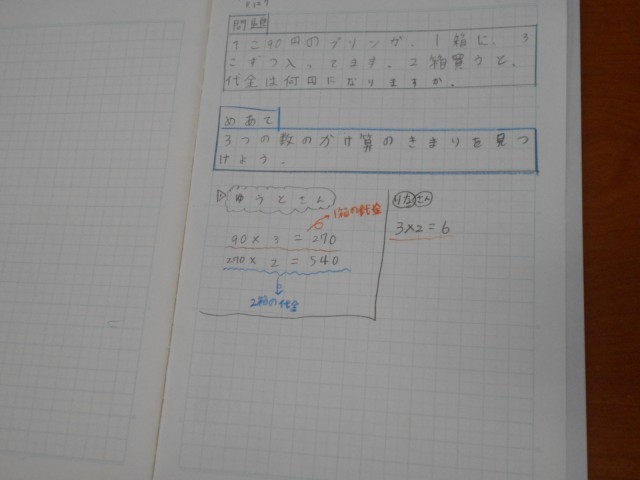 問題
1こ90円のプリンが、1箱に、3
こずつ入ってます。2箱買うと、
代金は何円になりますか。
めあて
3つの数のかけ算のきまりを見つ
けよう。
① ゆうとさん
1箱の代金
90×3=270
270×2=540
2箱の代金
りなさん
3×2=6